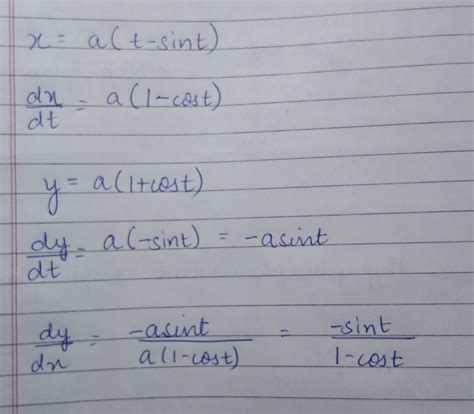 x = a(t-sint)
dx/dt = a(1-cost)
y = a(1+cost)
dy/dt = a(-sint) = -asint
dy/dx = -asint/a(1-cost) = -sint/1-cost